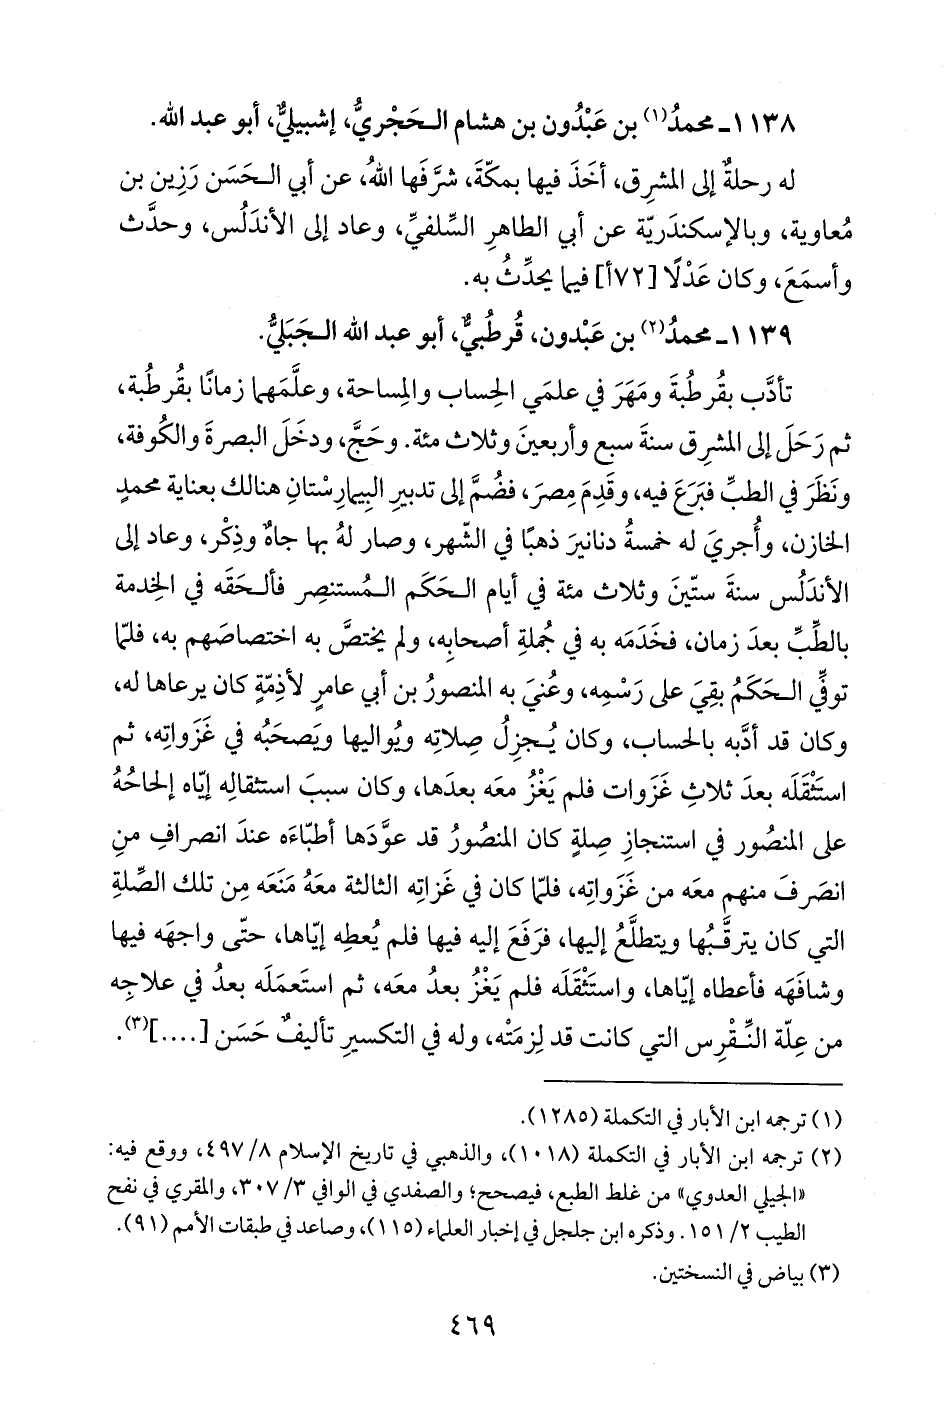 ١١٣٨ـ محمدُ(١) بن عَبْدُون بن هشام الـحَجْريُّ، إشبيليٌّ، أبو عبد الله.
له رحلةٌ إلى المشرِق، أخَذَ فيها بمكّةَ، شرَّفَها اللهُ، عن أبي الـحَسَن رَزِين بن
مُعاوية، وبالإسكندَريّة عن أبي الطاهرِ السِّلفيِّ، وعاد إلى الأندَلُس، وحدَّث
وأسمَعَ، وكان عَدْلًا [٧٢أ] فيما يحدِّثُ به.
١١٣٩ـ محمدُ(٢) بن عَبْدون، قُرطُبيٌّ، أبو عبد الله الـجَبَليُّ.
تأدَّب بقُرطُبةَ ومَهَرَ في علمَي الحِساب والمِساحة، وعلَّمَهما زمانًا بقُرطُبة،
ثم رَحَلَ إلى المشرق سنةَ سبع وأربعينَ وثلاث مئة. وحَجَّ، ودخَلَ البصرةَ والكُوفة،
ونَظَرَ في الطبِّ فبَرَعَ فيه، وقَدِمَ مِصرَ، فضُمَّ إلى تدبيرِ البِيمارِسْتانِ هنالك بعناية محمدٍ
الخازن، وأُجريَ له خمسةُ دنانيرَ ذهبًا في الشّهر، وصار لهُ بها جاهٌ وذِكْر، وعاد إلى
الأندَلُس سنةَ ستّينَ وثلاث مئة في أيام الـحَكَم الـمُستنصِر فألـحَقَه في الخِدمة
بالطِّبِّ بعدَ زمان، فخَدَمَه به في جُملةِ أصحابِه، ولم يختصَّ به اختصاصَهم به، فلمّا
توفِّي الـحَكَمُ بقِيَ على رَسْمِه، وعُنيَ به المنصورُ بن أبي عامرٍ لأذِمّةٍ كان يرعاها له،
وكان قد أدَّبه بالحساب، وكان يُـجزِلُ صِلاتِه ويُواليها ويَصحَبُه في غَزَواتِه، ثم
استَثْقَلَه بعدَ ثلاثِ غَزَوات فلم يَغْزُ معَه بعدَها، وكان سببَ استثقالِه إيّاه إلحاحُهُ
على المنصُور في استنجازِ صِلةٍ كان المنصُورُ قد عوَّدَها أطبّاءَه عندَ انصرافِ منِ
انصَرفَ منهم معَه من غَزَواتِه، فلمّا كان في غَزاتِه الثالثة معَهُ مَنَعَه مِن تلك الصِّلةِ
التي كان يترقَّبُها ويتطلَّعُ إليها، فرَفَعَ إليه فيها فلم يُعطِه إيّاها، حتّى واجهَه فيها
وشافَهَه فأعطاه إيّاها، واستَثْقَلَه فلم يَغْزُ بعدُ معَه، ثم استَعمَلَه بعدُ في علاجِه
من عِلّة النِّـقْرِس التي كانت قد لزِمَتْه، وله في التكسيرِ تأليفٌ حَسَن [....](٣).
(١) ترجمه ابن الأبار في التكملة (١٢٨٥).
(٢) ترجمه ابن الأبار في التكملة (١٠١٨)، والذهبي في تاريخ الإسلام ٨/ ٤٩٧، ووقع فيه:
«الجيلي العدوي» من غلط الطبع، فيصحح؛ والصفدي في الوافي ٣/ ٣٠٧، والمقري في نفح
الطيب ٢/ ١٥١. وذكره ابن جلجل في إخبار العلماء (١١٥)، وصاعد في طبقات الأمم (٩١).
(٣) بياض في النسختين.
٤٦٩